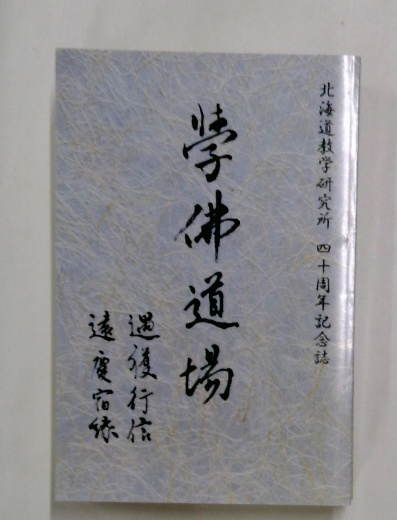 北海道教学研究所 四十周年記念誌
學佛道場
遇獲行信
遠慶宿縁